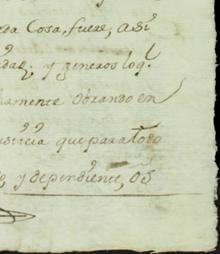 da Cosa, fuere, asi
y generos log.
amente Obrando en
usticia que para todo
y dependiente, os